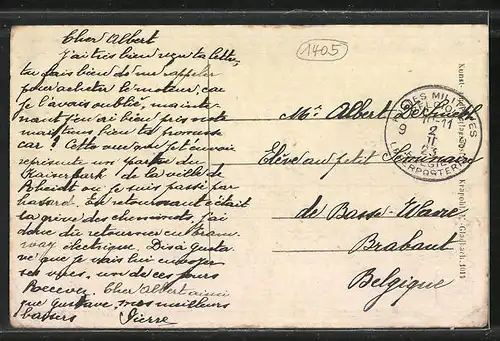 1405
Cher Albert
J'ai très bien reçu ta lettre,
tu fais bien de me rappeler
pour acheter le moteur, car
je l'avais oublié, mainte-
nant j'en ai bien pris note
mais tiens bien ta promesse
car? Cette vue que je t'envoie
représente une partie du
Kaiserpark de la ville de
Rheidt ou je suis passé par
hasard. En retournant c'était
la grève des cheminots, j'ai
donc du retourner en tram-
way électrique. Dis à Gusta-
ve que je vais lui envoyer
ses vues, un de ces jours
Recevez, Cher Albert ainsi
que Gustave, mes meilleurs
baisers Pierre
Mr Albert
Elève au petit Séminaire
de Basse-Wavre
Brabant
Belgique
POSTES MILITAIRES
9
2
II
23
BELGIE
LEGERPOSTERIJ
Gladbach. 1011